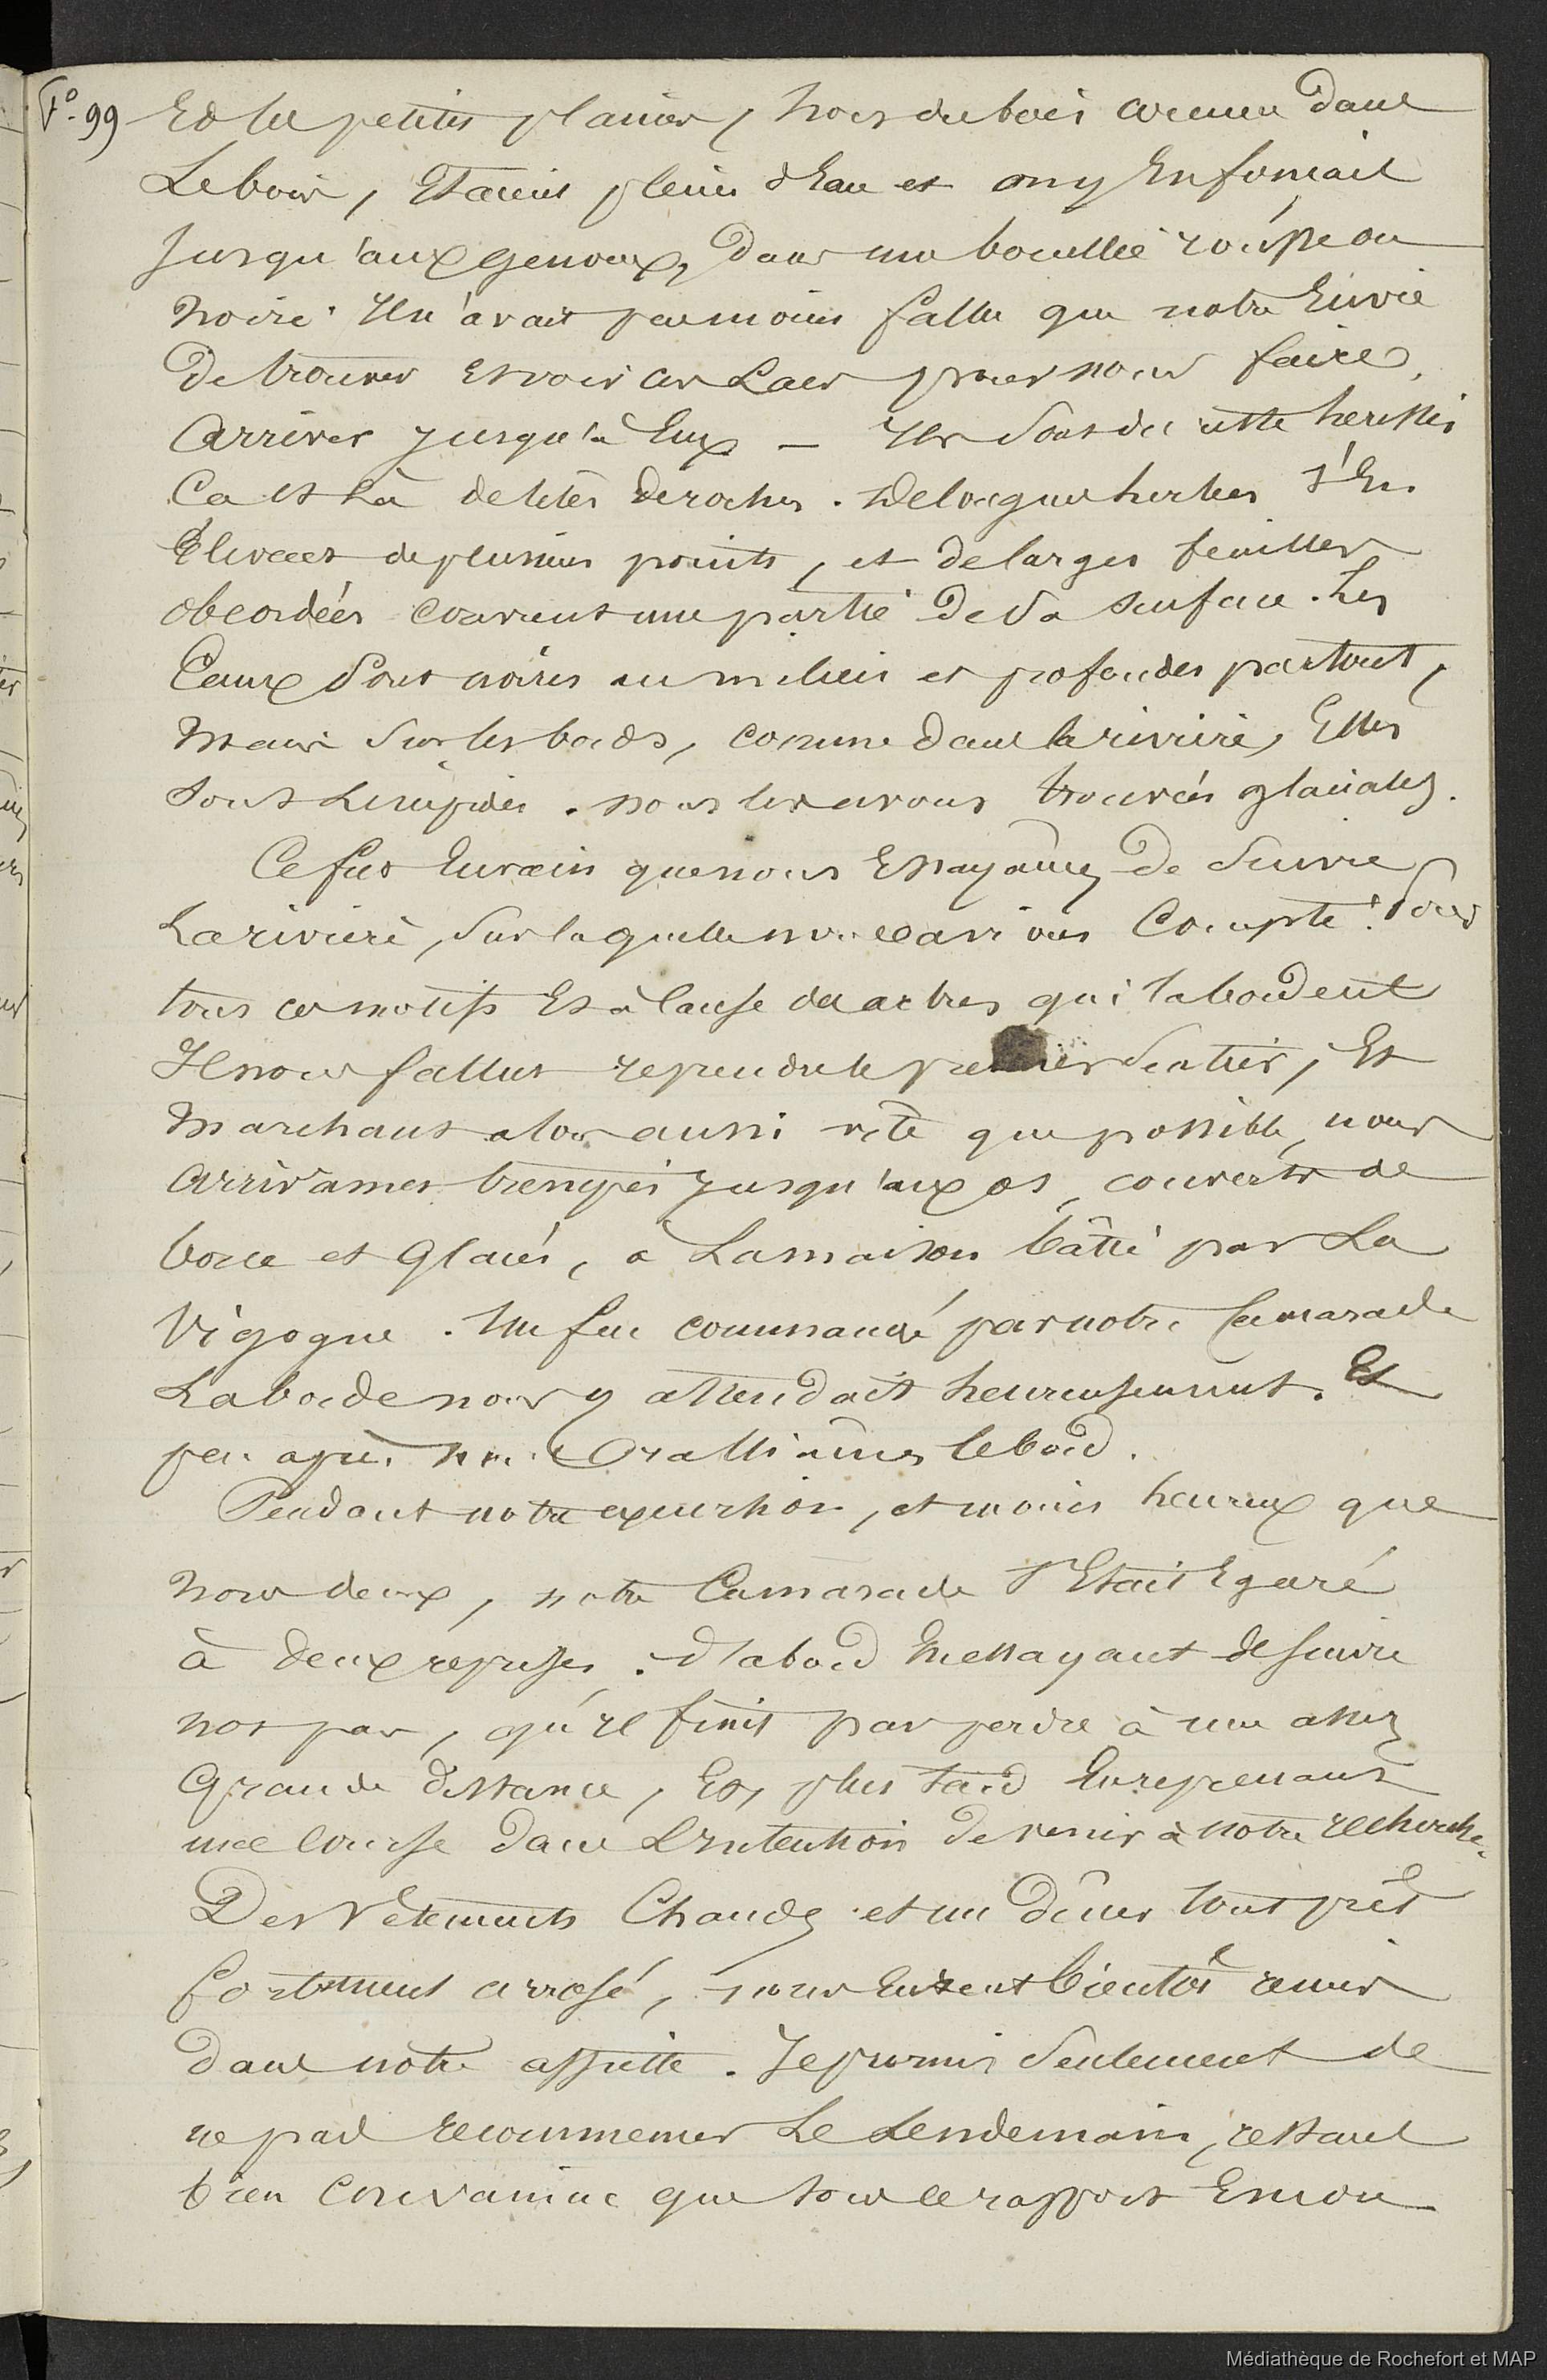 F.º 99
Et les petites plaines, hors du bois comme dans
Le bois, Etaient pleins d'Eau et on y Enfonçait
Jusqu'aux genoux, dans une bouillie rousse ou
noire. Il n'avait pas moins fallu que notre Envie
De trouver et voir ces Lacs pour nous faire
Arriver jusqu'à Eux — Ils sont du reste herissés
Ca et Là de têtes de roches. De longues herbes s'En
Elèvent de plusieurs points, et de larges feuilles
obcordées couvrent une partie De sa surface. Les
Eaux sont noires au milieu et profondes partout,
Mais sur les bords, comme dans la rivière, Elles
sont Limpides. nous les avons trouvées glaciales.
Ce fut Envain que nous Essayâmes De Suivre
La rivière, sur laquelle nous avions Compté. Pour
tous ces motifs Et à cause des arbres qui la bordent
Il nous fallut reprendre le premier Sentier, Et
Marchant alors aussi vite que possible, nous
Arrivâmes trempés Jusqu'aux os, couverts de
boue et Glacés, à La maison bâtie par La
Vigogne. Un feu commandé par notre Camarade
Laborde nous y attendait heureusement. Et
peu après nous ralliâmes le bord.
Pendant notre excursion, et moins heureux que
nous deux, notre Camarade s'Etait Egaré
à deux reprises. d'abord En essayant de suivre
nos pas, qu'il finit par perdre à une assez
Grande distance, Et, plus tard En reprenant
une Course dans L'intention de venir à notre recherche.
Des Vêtements Chauds et un Dîner tout prêt
fortement arrosé, nous Eurent bientôt remis
dans notre assiette. Je promis Seulement de
ne pas recommencer Le Lendemain, restant
bien Convaincu que sous ce rapport Encore
Médiathèque de Rochefort et MAP